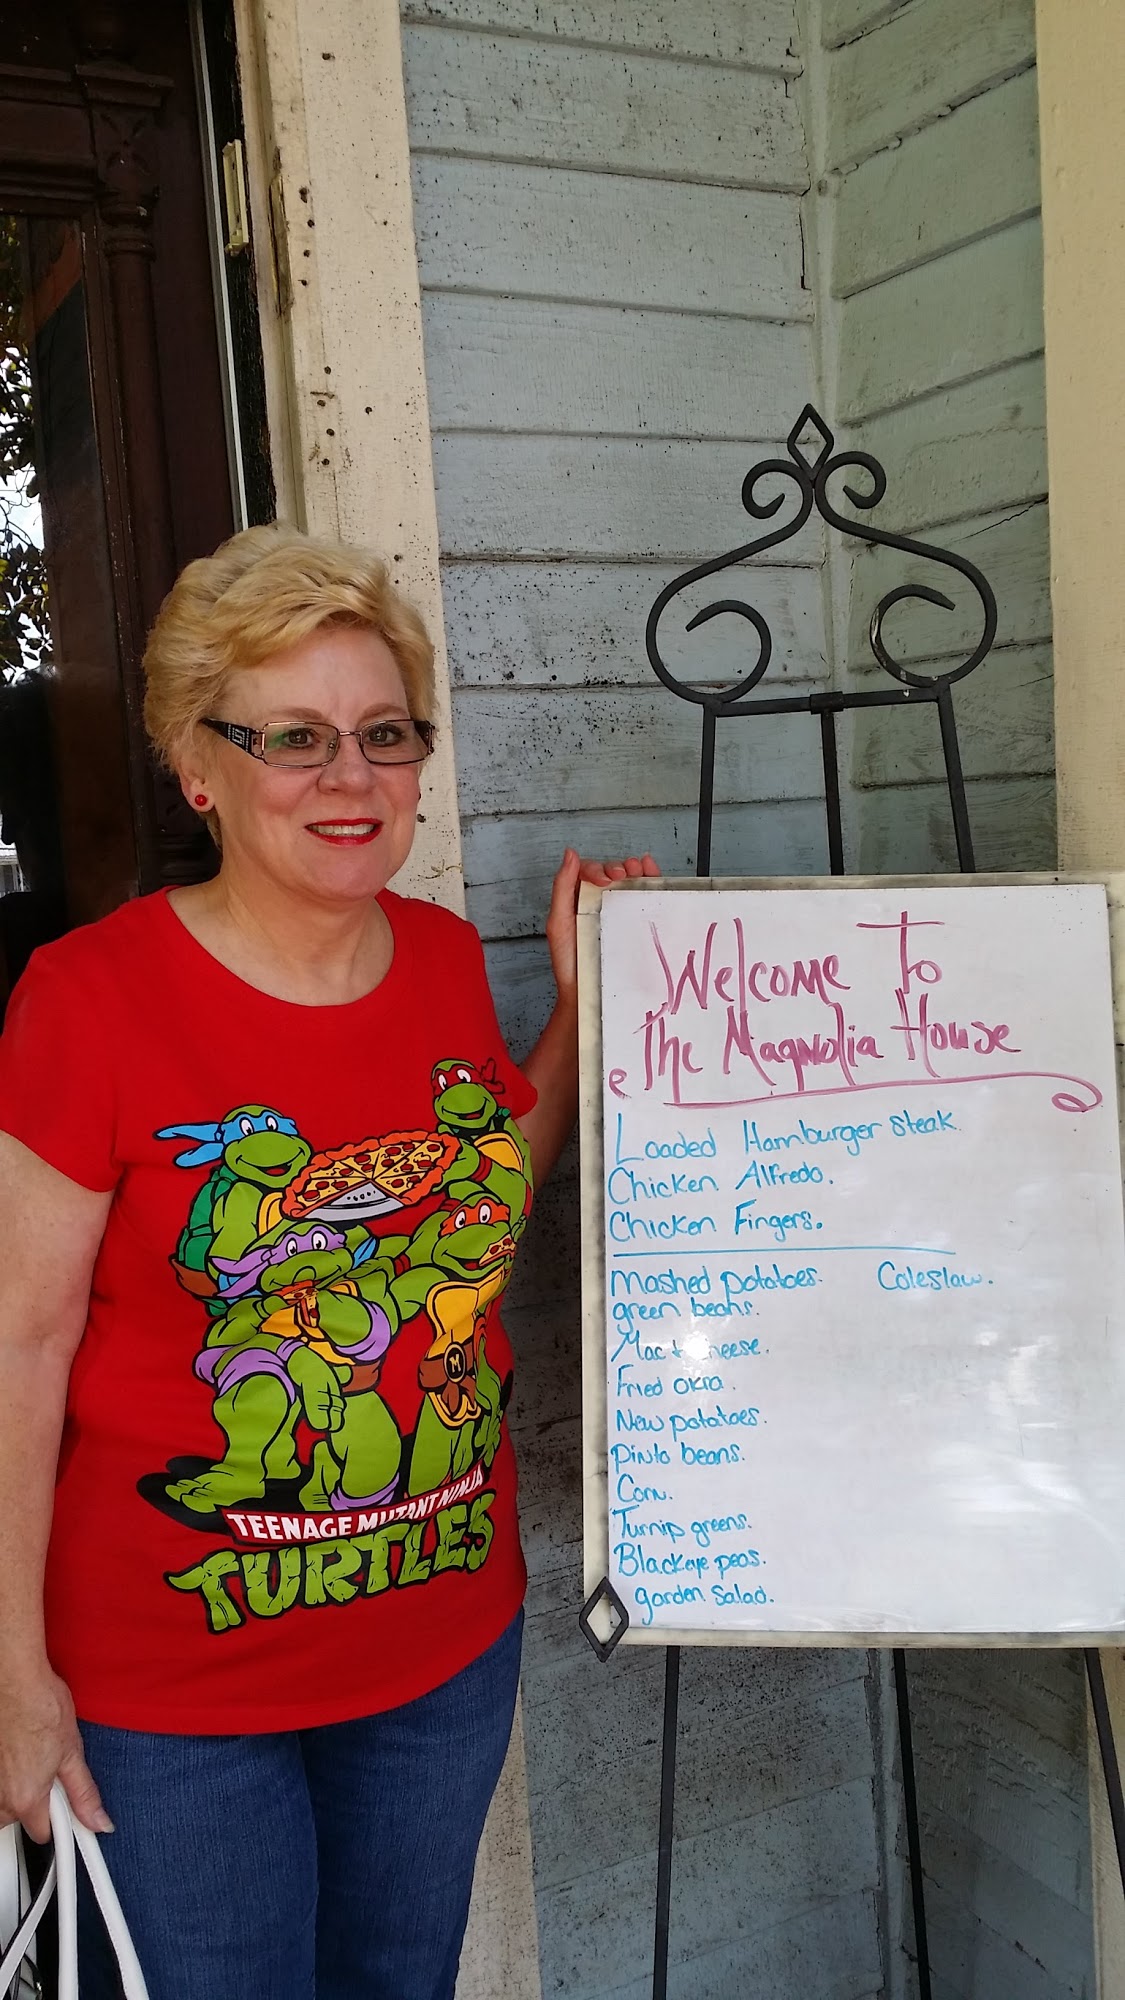 Welcome To
The Magnolia House
Loaded Hamburger steak.
Chicken Alfredo.
Chicken Fingers.
Mashed potatoes. Coleslaw.
green beans.
Mac + cheese.
Fried okra.
New potatoes.
Pinto beans.
Corn.
Turnip greens.
Blackeye peas.
garden Salad.
TEENAGE MUTANT NINJA
TURTLES
M